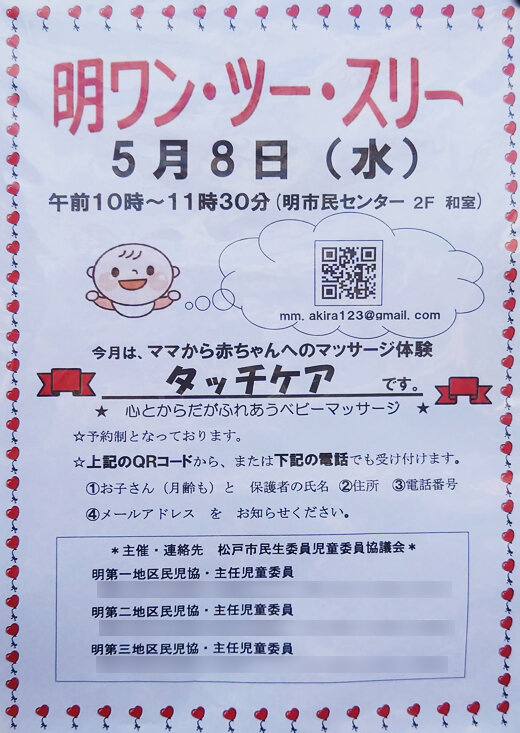 明ワン・ツー・スリー
5月8日（水）
午前10時～11時30分（明市民センター 2F 和室）
mm. akira123@gmail. com
今月は、ママから赤ちゃんへのマッサージ体験
タッチケア です。
★ 心とからだがふれあうベビーマッサージ ★
☆予約制となっております。
☆上記のQRコードから、または下記の電話でも受け付けます。
①お子さん（月齢も）と 保護者の氏名 ②住所 ③電話番号
④メールアドレス を お知らせください。
＊主催・連絡先 松戸市民生委員児童委員協議会＊
明第一地区民児協・主任児童委員
明第二地区民児協・主任児童委員
明第三地区民児協・主任児童委員